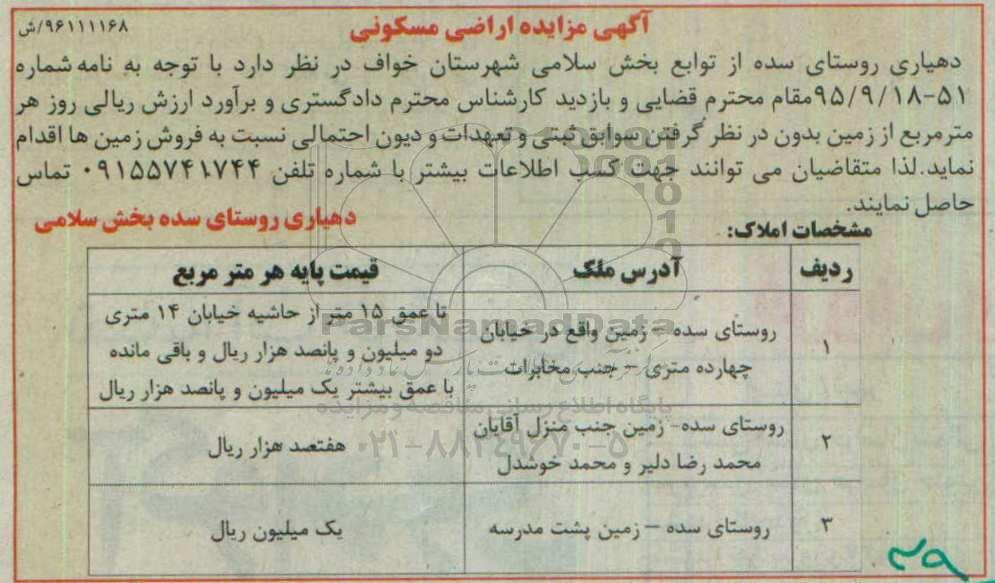 آگهی مزایده اراضی مسکونی
۹۶۱۱۱۱۶۸/ش
دهیاری روستای سده از توابع بخش سلامی شهرستان خواف در نظر دارد با توجه به نامه شماره
۵۱-۹۵/۹/۱۸مقام محترم قضایی و بازدید کارشناس محترم دادگستری و برآورد ارزش ریالی روز هر
مترمربع از زمین بدون در نظر گرفتن سوابق ثبتی و تعهدات و دیون احتمالی نسبت به فروش زمین ها اقدام
نماید.لذا متقاضیان می توانند جهت کسب اطلاعات بیشتر با شماره تلفن ۰۹۱۵۵۷۴۱۷۴۴ تماس
حاصل نمایند.
دهیاری روستای سده بخش سلامی
مشخصات املاک:
ردیف آدرس ملک قیمت پایه هر متر مربع
۱
روستای سده – زمین واقع در خیابان
چهارده متری – جنب مخابرات
تا عمق ۱۵ متر از حاشیه خیابان ۱۴ متری
دو میلیون و پانصد هزار ریال و باقی مانده
با عمق بیشتر یک میلیون و پانصد هزار ریال
۲
روستای سده- زمین جنب منزل آقایان
محمد رضا دلیر و محمد خوشدل
هفتصد هزار ریال
۳ روستای سده – زمین پشت مدرسه یک میلیون ریال
ParsNamadData
پایگاه اطلاع رسانی مناقصه و مزایده
۰۲۱-۸۸۳۴۹۶۷۰-۵
۲۹